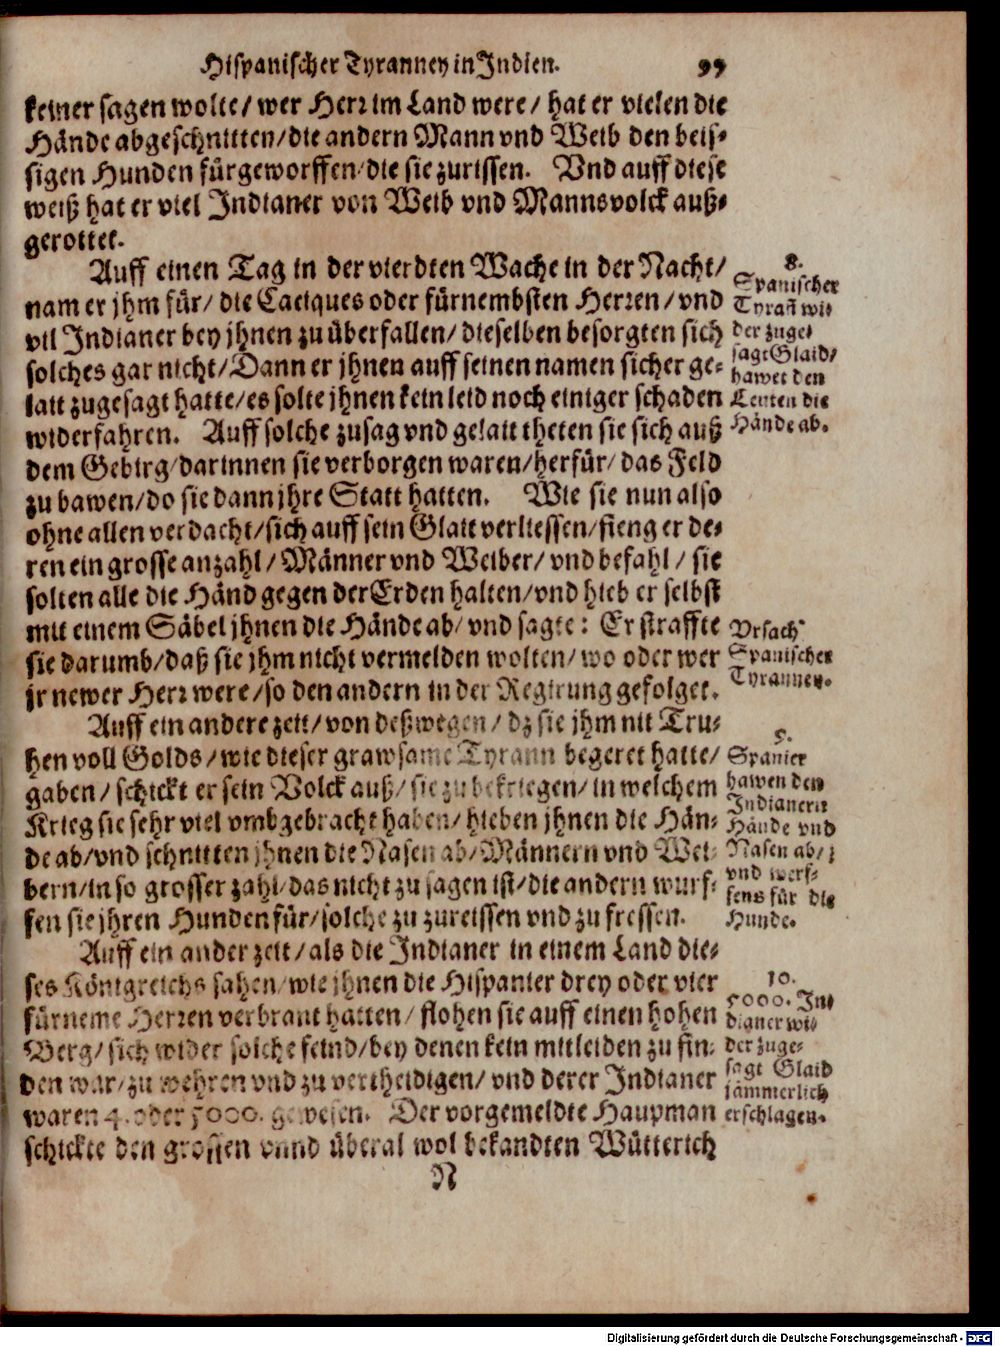 Hispanischer Tyranney in Indien. 97
keiner sagen wolte/ wer Herr im Land were/ hat er vielen die
Hände abgeschnitten/ die andern Mann vnd Weib den beis-
sigen Hunden fürgeworffen/ die sie zurissen. Vnd auff diese
weiß hat er viel Indianer von Weib vnd Mannsvolck auß-
gerottet.
Auff einen Tag in der vierdten Wache in der Nacht/
nam er jhm für/ die Caciques oder fürnembsten Herren/ vnd
vil Indianer bey jhnen zu überfallen/ dieselben besorgten sich
solches gar nicht/ Dann er jhnen auff seinen namen sicher ge-
lait zugesagt hatte/ es solte jhnen kein leid noch einiger schaden
widerfahren. Auff solche zusag vnd gelait theten sie sich auß
dem Gebirg/ darinnen sie verborgen waren/ herfür/ das Feld
zu bawen/ do sie dann jhre Statt hatten. Wie sie nun also
ohne allen verdacht/ sich auff sein Glait verliessen/ fieng er de-
ren ein grosse anzahl/ Männer vnd Weiber/ vnd befahl/ sie
solten alle die Händ gegen der Erden halten/ vnd hieb er selbst
mit einem Säbel jhnen die Hände ab/ vnd sagte: Er straffte
sie darumb/ daß sie jhm nicht vermelden wolten/ wo oder wer
jr newer Herr were/ so den andern in der Regirung gefolget.
Auff ein andere zeit/ von deßwegen/ dz sie jhm nit Tru-
hen voll Golds/ wie dieser grawsame Tyrann begeret hatte/
gaben/ schickt er sein Volck auß/ sie zu bekriegen/ in welchem
Krieg sie sehr viel vmbgebracht haben/ hieben jhnen die Hän-
de ab/ vnd schnitten jhnen die Nasen ab/ Männern vnd Wei-
bern/ in so grosser zahl/ das nicht zu sagen ist/ die andern wurf-
fen sie jhren Hunden für/ solche zu zureissen vnd zu fressen.
Auff ein ander zeit/ als die Indianer in einem Land die-
ses Königreichs sahen/ wie jhnen die Hispanier drey oder vier
fürneme Herren verbrant hatten/ flohen sie auff einen hohen
Berg/ sich wider solche feind/ bey denen kein mitleiden zu fin-
den war/ zu wehren vnd zu vertheidigen/ vnd derer Indianer
waren 4. oder 5000. gewesen. Der vorgemeldte Haupman
schickte den grossen vnnd überal wol bekandten Wütterich
N
8.
Spanischer
Tyrañ wi-
der zuge-
sagt Glaid/
hawet den
Leuten die
Hände ab.
Vrsach
Spanischer
Tyranney.
9.
Spanier
hawen den
Indianern
Hände vnd
Nasen ab/
vnd werf-
fens für die
Hunde.
10.
5000. In-
dianer wi-
der zuge-
sagt Glaid
jämmerlich
erschlagen.
Digitalisierung gefördert durch die Deutsche Forschungsgemeinschaft - DFG